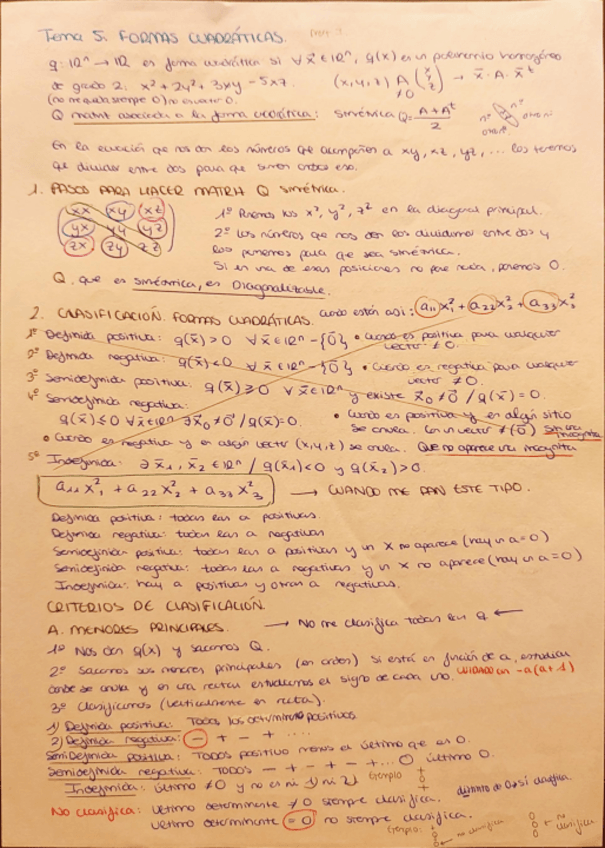 Tema 5. FORMAS CUADRÁTICAS.
q: ℝⁿ → ℝ es forma cuadrática si ∀ x̄ ∈ ℝⁿ, q(x) es un polinomio homogéneo
de grado 2. x² + 2y² + 3xy - 5xz. (x,y,z) A (x y z) → x̄ · A · x̄ᵗ
≠0
Q matriz asociada a la forma cuadrática: Simétrica Q = (A + Aᵗ)/2
En la ecuación que nos dan los números que acompañan a xy, xz, yz, ... los tenemos
que dividir entre dos para que
1. PASOS PARA HACER MATRIZ Q simétrica.
xx xy xz
yx yy yz
zx zy zz
1º Ponemos los x², y², z² en la diagonal principal.
2º Los números que nos den los dividimos entre dos y
los ponemos para que sea simétrica.
Si en una de esas posiciones no pone nada, ponemos 0.
Q, que es simétrica, es Diagonalizable.
2. CLASIFICACIÓN FORMAS CUADRÁTICAS. cuando están así: a₁₁x₁² + a₂₂x₂² + a₃₃x₃²
1º Definida positiva: q(x̄) > 0 ∀ x̄ ∈ ℝⁿ - {0̄} • cuando es positiva para cualquier
vector ≠ 0.
2º Definida negativa: q(x̄) < 0 ∀ x̄ ∈ ℝⁿ - {0̄} • Cuando es negativa para cualquier
vector ≠ 0.
3º Semidefinida positiva: q(x̄) ≥ 0 ∀ x̄ ∈ ℝⁿ y existe x̄₀ ≠ 0̄ / q(x̄) = 0.
4º Semidefinida negativa:
q(x̄) ≤ 0 ∀ x̄ ∈ ℝⁿ ∃ x̄₀ ≠ 0̄ / q(x̄) = 0. • Cuando es positiva y en algún sitio
se anula. Con un vector ≠ (0̄) Sin una incógnita
• Cuando es negativa y en algún vector (x,y,z) se anula. Que no aparece una incógnita
5º Indefinida: ∃ x̄₁, x̄₂ ∈ ℝⁿ / q(x̄₁) < 0 y q(x̄₂) > 0.
a₁₁x₁² + a₂₂x₂² + a₃₃x₃² → CUANDO ME DAN ESTE TIPO.
Definida positiva: todas las a positivas.
Definida negativa: todas las a negativas
Semidefinida positiva: todas las a positivas y un X no aparece (hay un a=0)
Semidefinida negativa: todas las a negativas y un X no aparece (hay un a=0)
Indefinida: hay a positivas y otras a negativas.
CRITERIOS DE CLASIFICACIÓN.
A. MENORES PRINCIPALES. → No me clasifica todas las q ←
1º Nos dan q(x) y sacamos Q.
2º Sacamos sus menores principales (en orden) Si está en función de a, estudiar
donde se anula y en una recta estudiamos el signo de cada uno. cuidado con -a(a+1)
3º Clasificamos (verticalmente en recta).
1) Definida positiva: Todos los determinantes positivos
2) Definida negativa: - + - + ....
Semidefinida positiva: TODOS positivo menos el último que es 0.
Semidefinida negativa: TODOS - + - + - + ... 0 último 0.
Indefinida: último ≠ 0 y no es ni 1) ni 2) Ejemplo
distinto de 0 → Sí clasifica.
No clasifica: último determinante ≠ 0 siempre clasifica.
último determinante = 0 no siempre clasifica.
Ejemplo: ← no clasifica ← no clasifica